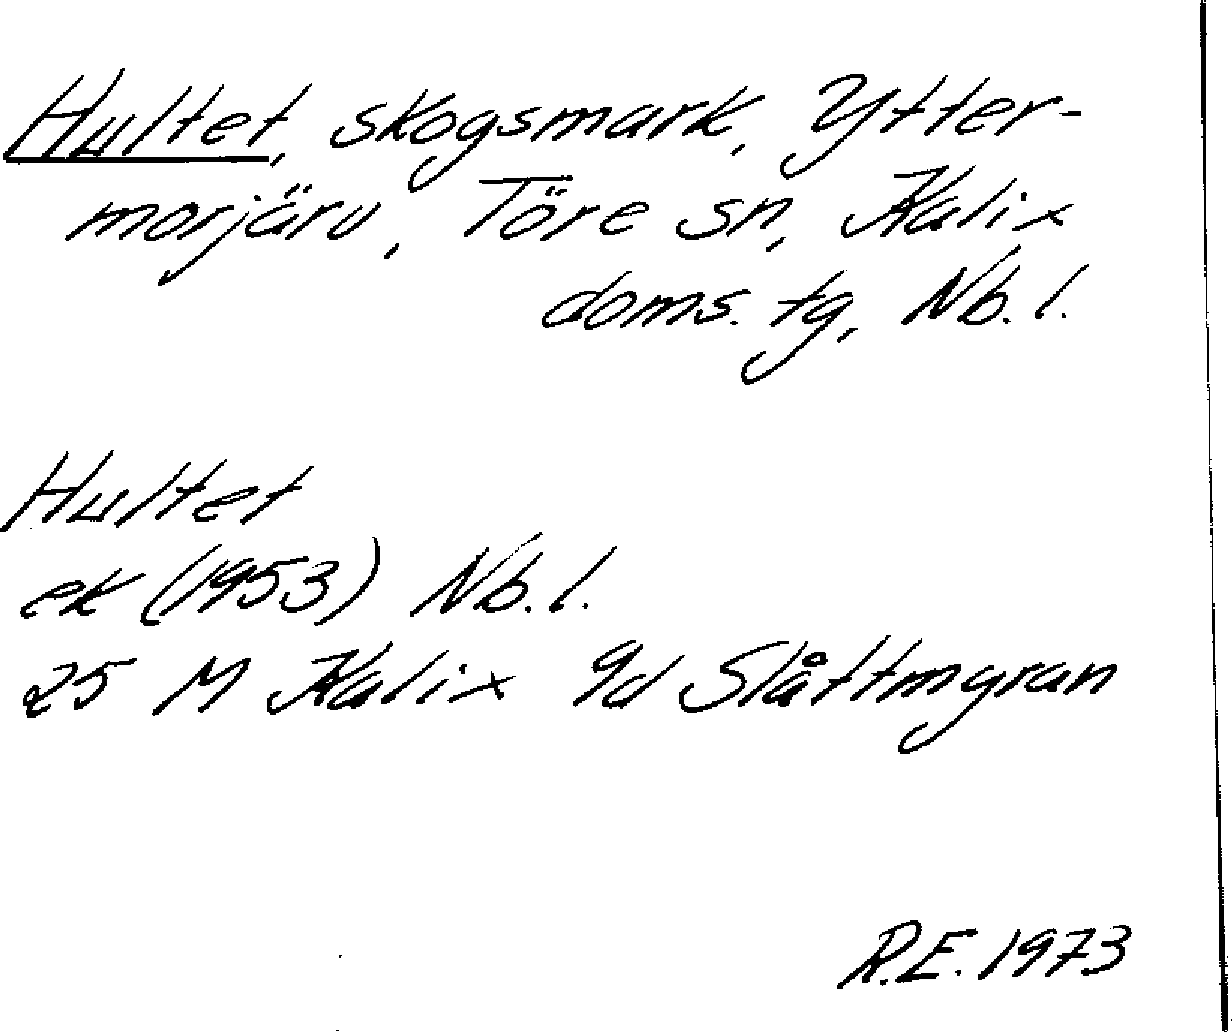 Hultet, skogsmark, Ytter-
morjärv, Töre sn, Kalix
doms. tg, Nb. l.
Hultet
ek (1953) Nb. l.
25 M Kalix 9d Slåttmyran
R.E. 1973